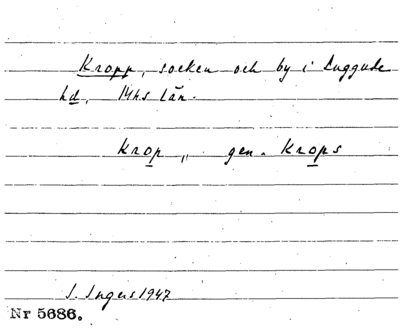 Kropp, socken och by i Luggude
hd, Mhs län.
krop „ gen. Krops
I. Ingers 1947
Nr 5686.